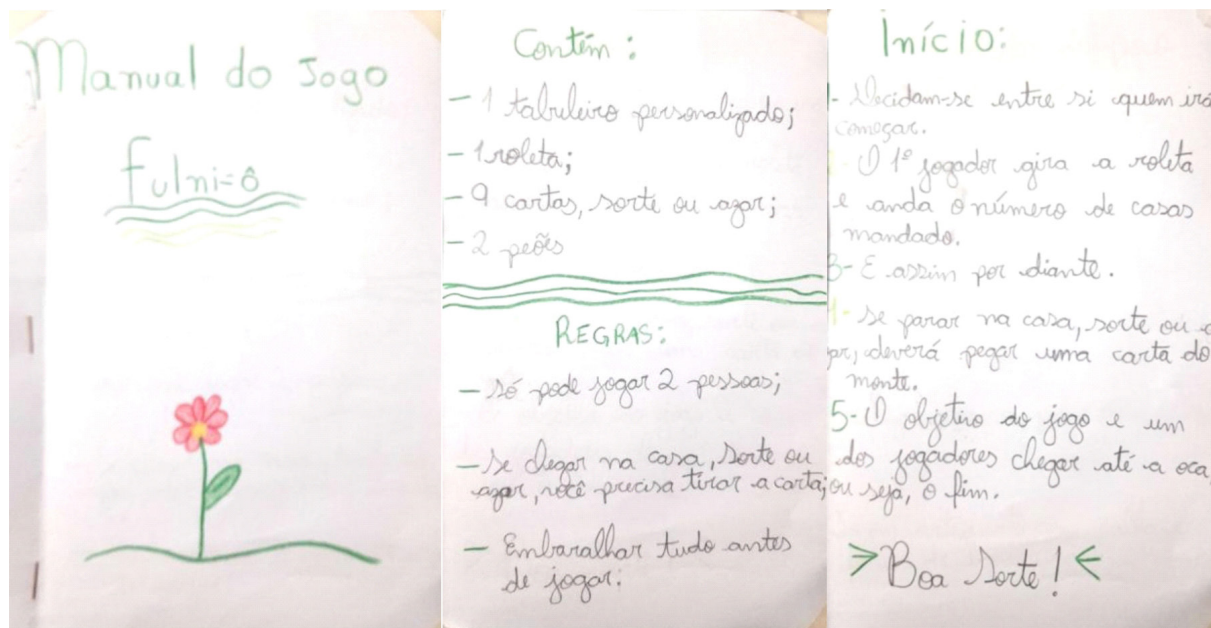 Manual do Jogo
Fulni-ô
Contém :
- 1 tabuleiro personalizado;
- 1 roleta;
- 9 cartas, sorte ou azar;
- 2 peões
REGRAS:
- só pode jogar 2 pessoas;
- se chegar na casa, sorte ou
azar, você precisa tirar a carta;
- Embaralhar tudo antes
de jogar.
Início:
- Decidam-se entre si quem irá
começar.
- O 1º jogador gira a roleta
e anda o número de casas
mandado.
3- E assim por diante.
4- se parar na casa, sorte ou
ar, deverá pegar uma carta do
monte.
5- O objetivo do jogo e um
dos jogadores chegar até a oca,
ou seja, o fim.
> Boa Sorte! <